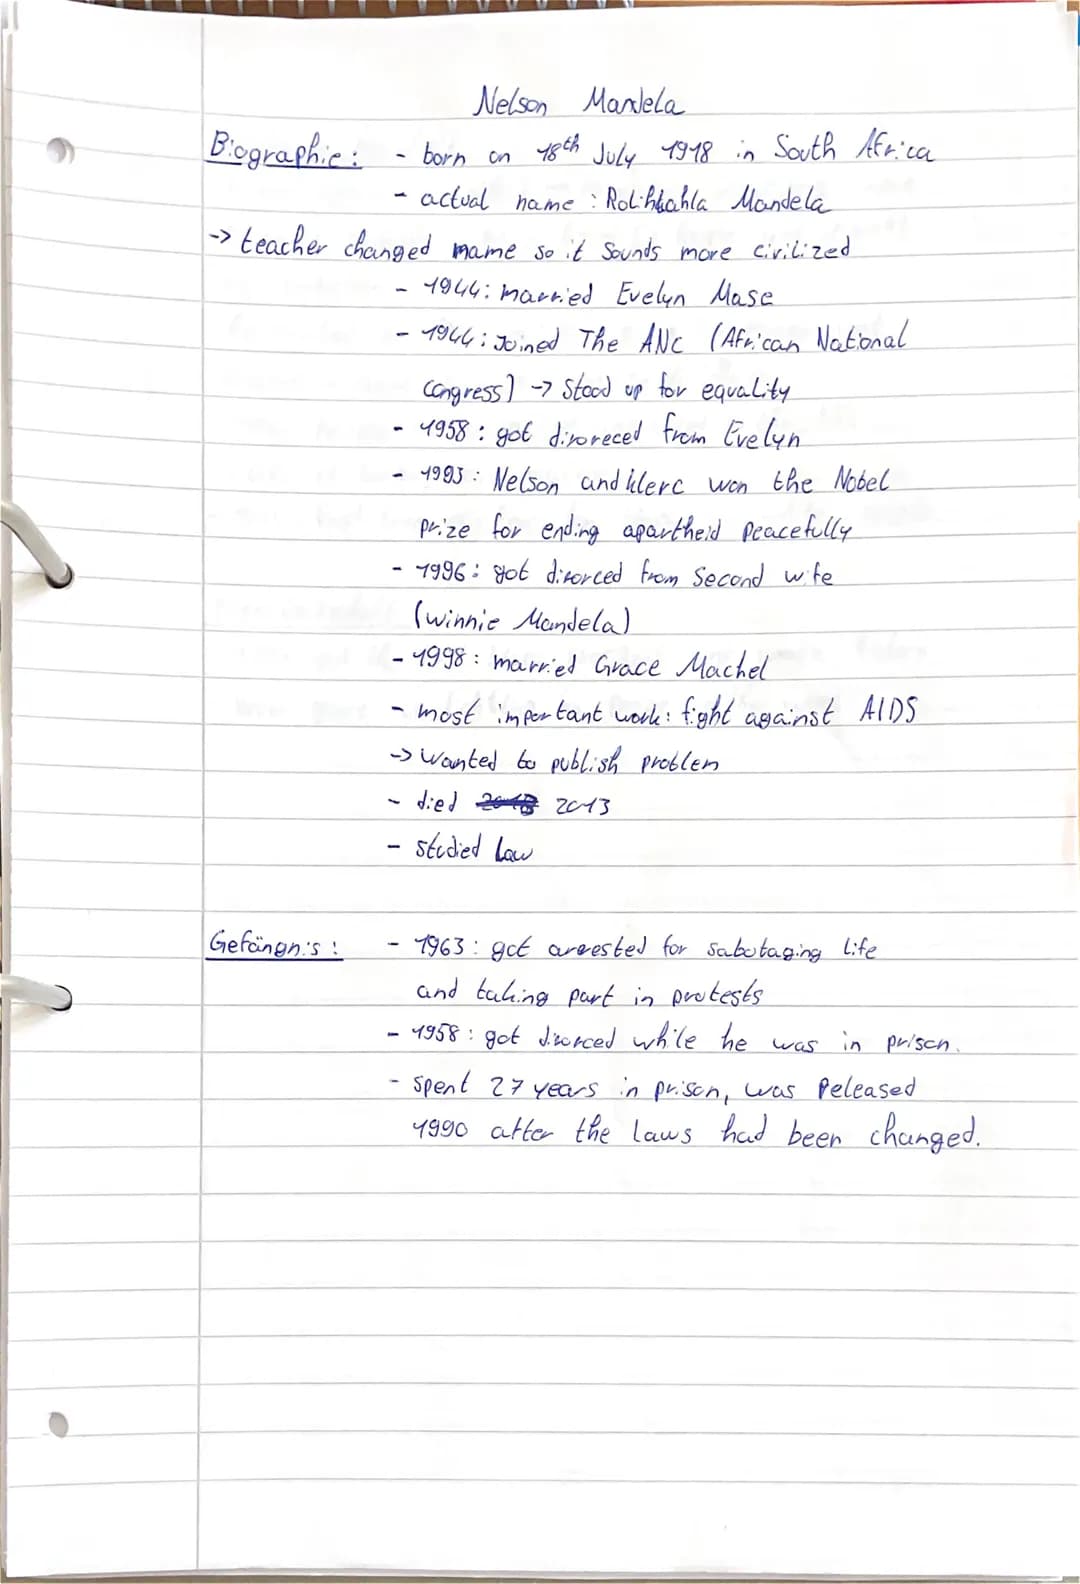 Nelson Mandela
Biographie: - born on 18th July 1918 in South Africa
- actual name: Rolihlahla Mandela
-> teacher changed name so it sounds more civilized
- 1944: married Evelyn Mase
- 1944: Joined The ANC (African National
Congress) -> Stood up for equality
- 1958: got divoreced from Evelyn
- 1993: Nelson and klerc won the Nobel
prize for ending apartheid peacefully
- 1996: got divorced from Second wife
(winnie Mandela)
- 1998: married Grace Machel
- most important work: fight against AIDS
-> wanted to publish problem
- died 2013
- studied Law
Gefängnis: - 1963: got arrested for sabotaging life
and taking part in protests
- 1958: got divorced while he was in prison.
- spent 27 years in prison, was Released
1990 after the laws had been changed.